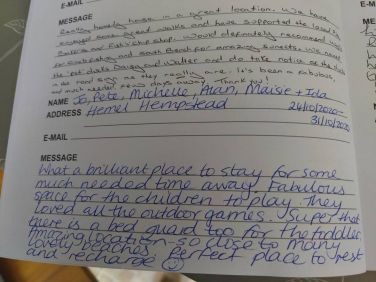 E-MAIL
MESSAGE
Really homely house in a great location. We have
enjoyed some great walks and have supported the local
and fish & chip shop. Would definitely recommend
and South Beach for amazing sunsets. We
the pot ducks Daisy and Walter and do take notice of the
in the road sign as they really are. It's been a fabulous,
and much needed few days away. Thank you!
NAME Jo, Pete, Michelle, Alan, Maisie + Isla
ADDRESS Hemel Hempstead 24/10/2020 -
31/10/2020
E-MAIL
MESSAGE
What a brilliant place to stay for some
much needed time away. Fabulous
space for the children to play. They
loved all the outdoor games. Super that
there is a bed guard too for the toddler.
Amazing location - so close to many
lovely beaches. Perfect place to rest
and recharge